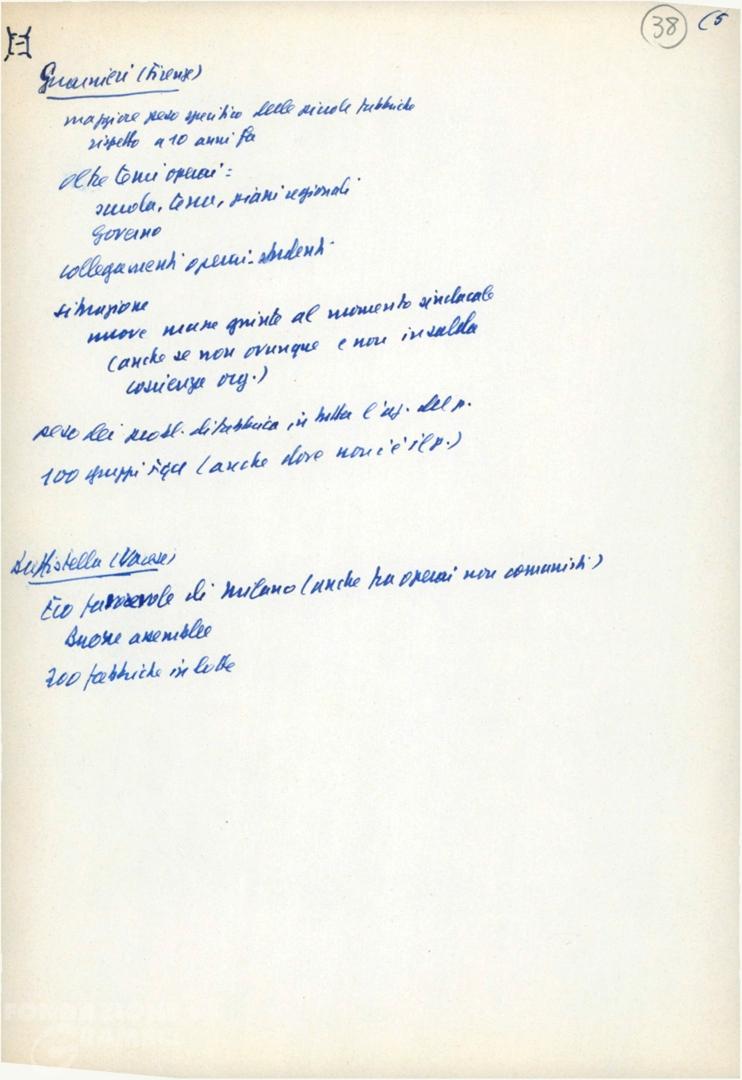 38
Guarnieri (Firenze)
maggiore peso specifico delle piccole fabbriche
rispetto a 10 anni fa
oltre temi operai:
scuola, terra, piani regionali
Governo
collegamenti operai-studenti
situazione
nuove masse giunte al momento sindacale
(anche se non ovunque e non in salda
coscienza org.)
peso dei probl. di fabbrica in tutta l'az. del p.
100 gruppi (anche dove non c'è il p.)
Battistella (Varese)
Eco favorevole di Milano (anche tra operai non comunisti)
Buone assemblee
200 fabbriche in lotta
FONDAZIONE
GRAMSCI